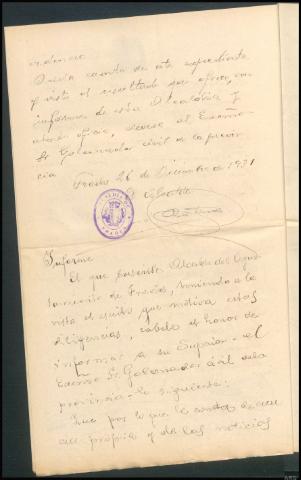 Dése cuenta de este expediente
y visto el resultado que ofrece, con
informe de esta Alcaldía y
atento oficio, al Excmo
Sr Gobernador civil de la provin
cia
26 de Diciembre de 1931
El Alcalde
Informe
El que suscribe Alcalde del Ayun
tamiento de teniendo a la
vista el escrito que motiva estas
diligencias, cabele el honor de
informar a su Superior el
Excmo Sr. Gobernador civil de la
provincia lo siguiente:
Que por lo que le consta de
propio y de las noticias